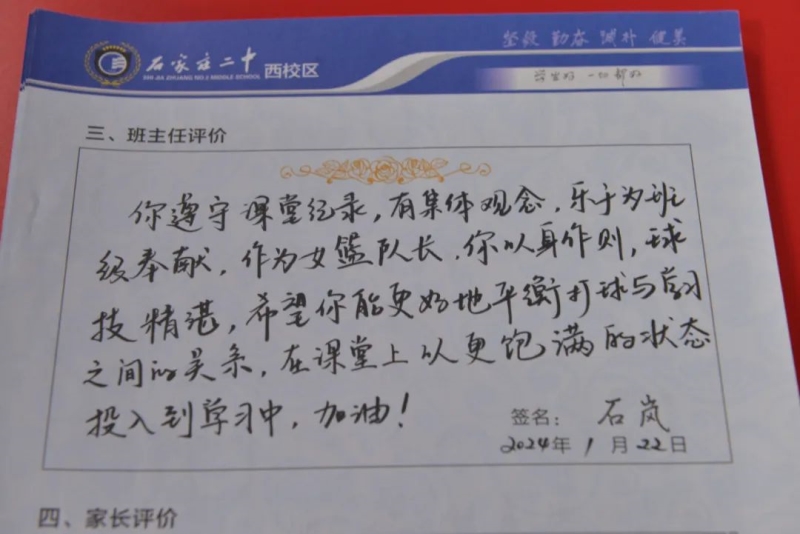 坚毅 勤奋 诚朴 健美
石家庄二十
SHI JIA ZHUANG NO.2 MIDDLE SCHOOL
西校区
三、班主任评价
你遵守课堂纪录，有集体观念，乐于为班
级奉献，作为女篮队长，你以身作则，球
技精湛，希望你能更好地平衡打球与学习
之间的关系，在课堂上以更饱满的状态
投入到学习中，加油！
签名：石岚
2024年1月22日
四、家长评价